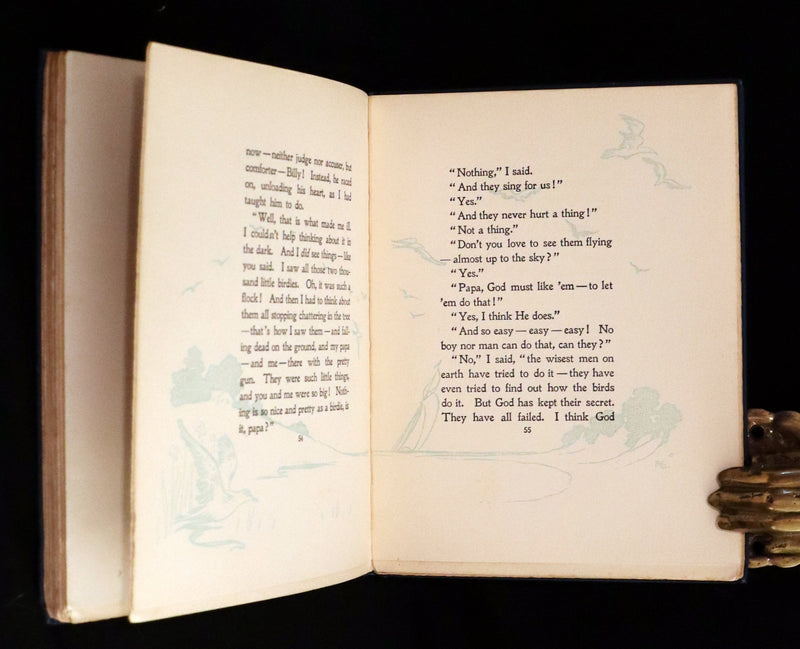 now—neither judge nor accuser, but
comforter—Billy! Instead, he raced
on, unloading his heart, as I had
taught him to do.
"Well, that is what made me ill.
I couldn't help thinking about it in
the dark. And I did see things—like
you said. I saw all those two thou-
sand little birdies. Oh, it was such a
flock! And then I had to think about
them all stopping chattering in the tree
—that's how I saw them—and fall-
ing dead on the ground, and my papa
—and me—there with the pretty
gun. They were such little things,
and you and me were so big! Noth-
ing is so nice and pretty as a birdie, is
it, papa?"
54
"Nothing," I said.
"And they sing for us!"
"Yes."
"And they never hurt a thing!"
"Not a thing."
"Don't you love to see them flying
—almost up to the sky?"
"Yes."
"Papa, God must like 'em—to let
'em do that!"
"Yes, I think He does."
"And so easy—easy—easy! No
boy nor man can do that, can they?"
"No," I said, "the wisest men on
earth have tried to do it—they have
even tried to find out how the birds
do it. But God has kept their secret.
They have all failed. I think God
55